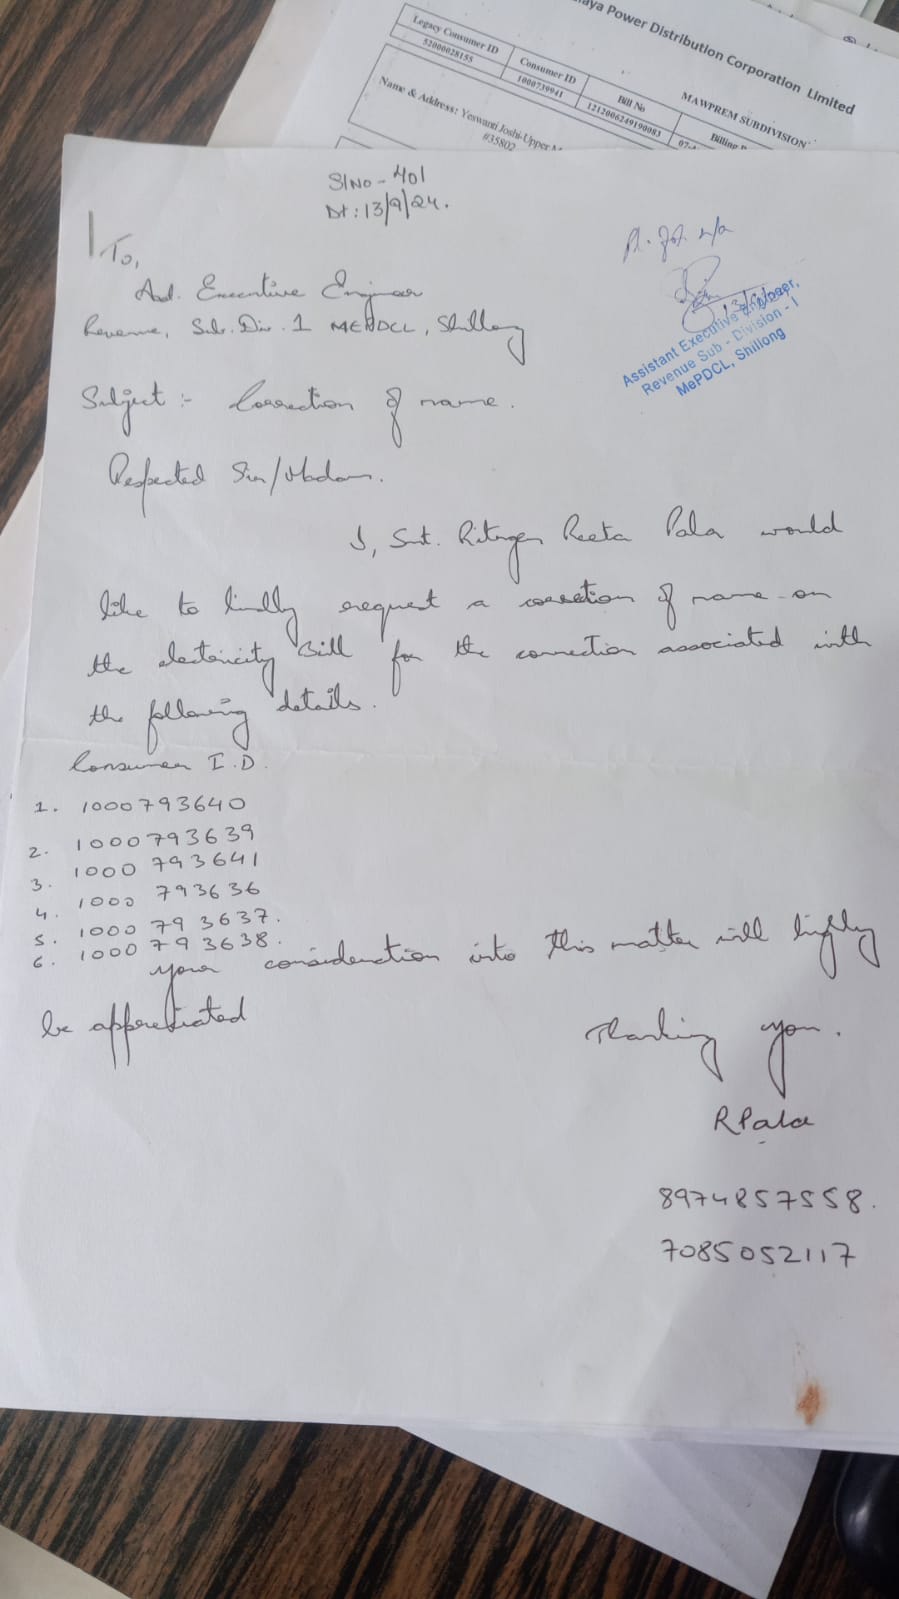 aya Power Distribution Corporation Limited
MAWPREM SUBDIVISION
Legacy Consumer ID
Consumer ID
Bill No
Billing
52000028155
1000739941
1212006249190083
07-
Name & Address: Yeswanti Joshi-Upper
#35802
Sl No - 401
Dt: 13/9/24.
To,
Asst. Executive Engineer
Revenue, Sub. Div. 1 MEPDCL, Shillong
Assistant Executive Engineer,
Revenue Sub - Division - I
MePDCL, Shillong
Subject :- Correction of name.
Respected Sir/Madam.
I, Smt. Reeta Pala would
like to kindly request a correction of name on
the electricity Bill for the connection associated with
the following details.
Consumer I.D.
1. 1000793640
2. 1000793639
3. 1000 793641
4. 1000 793636
5. 1000 79 3637.
6. 1000 79 3638.
your consideration into this matter will highly
be appreciated
Thanking you.
RPala
8974857558.
7085052117